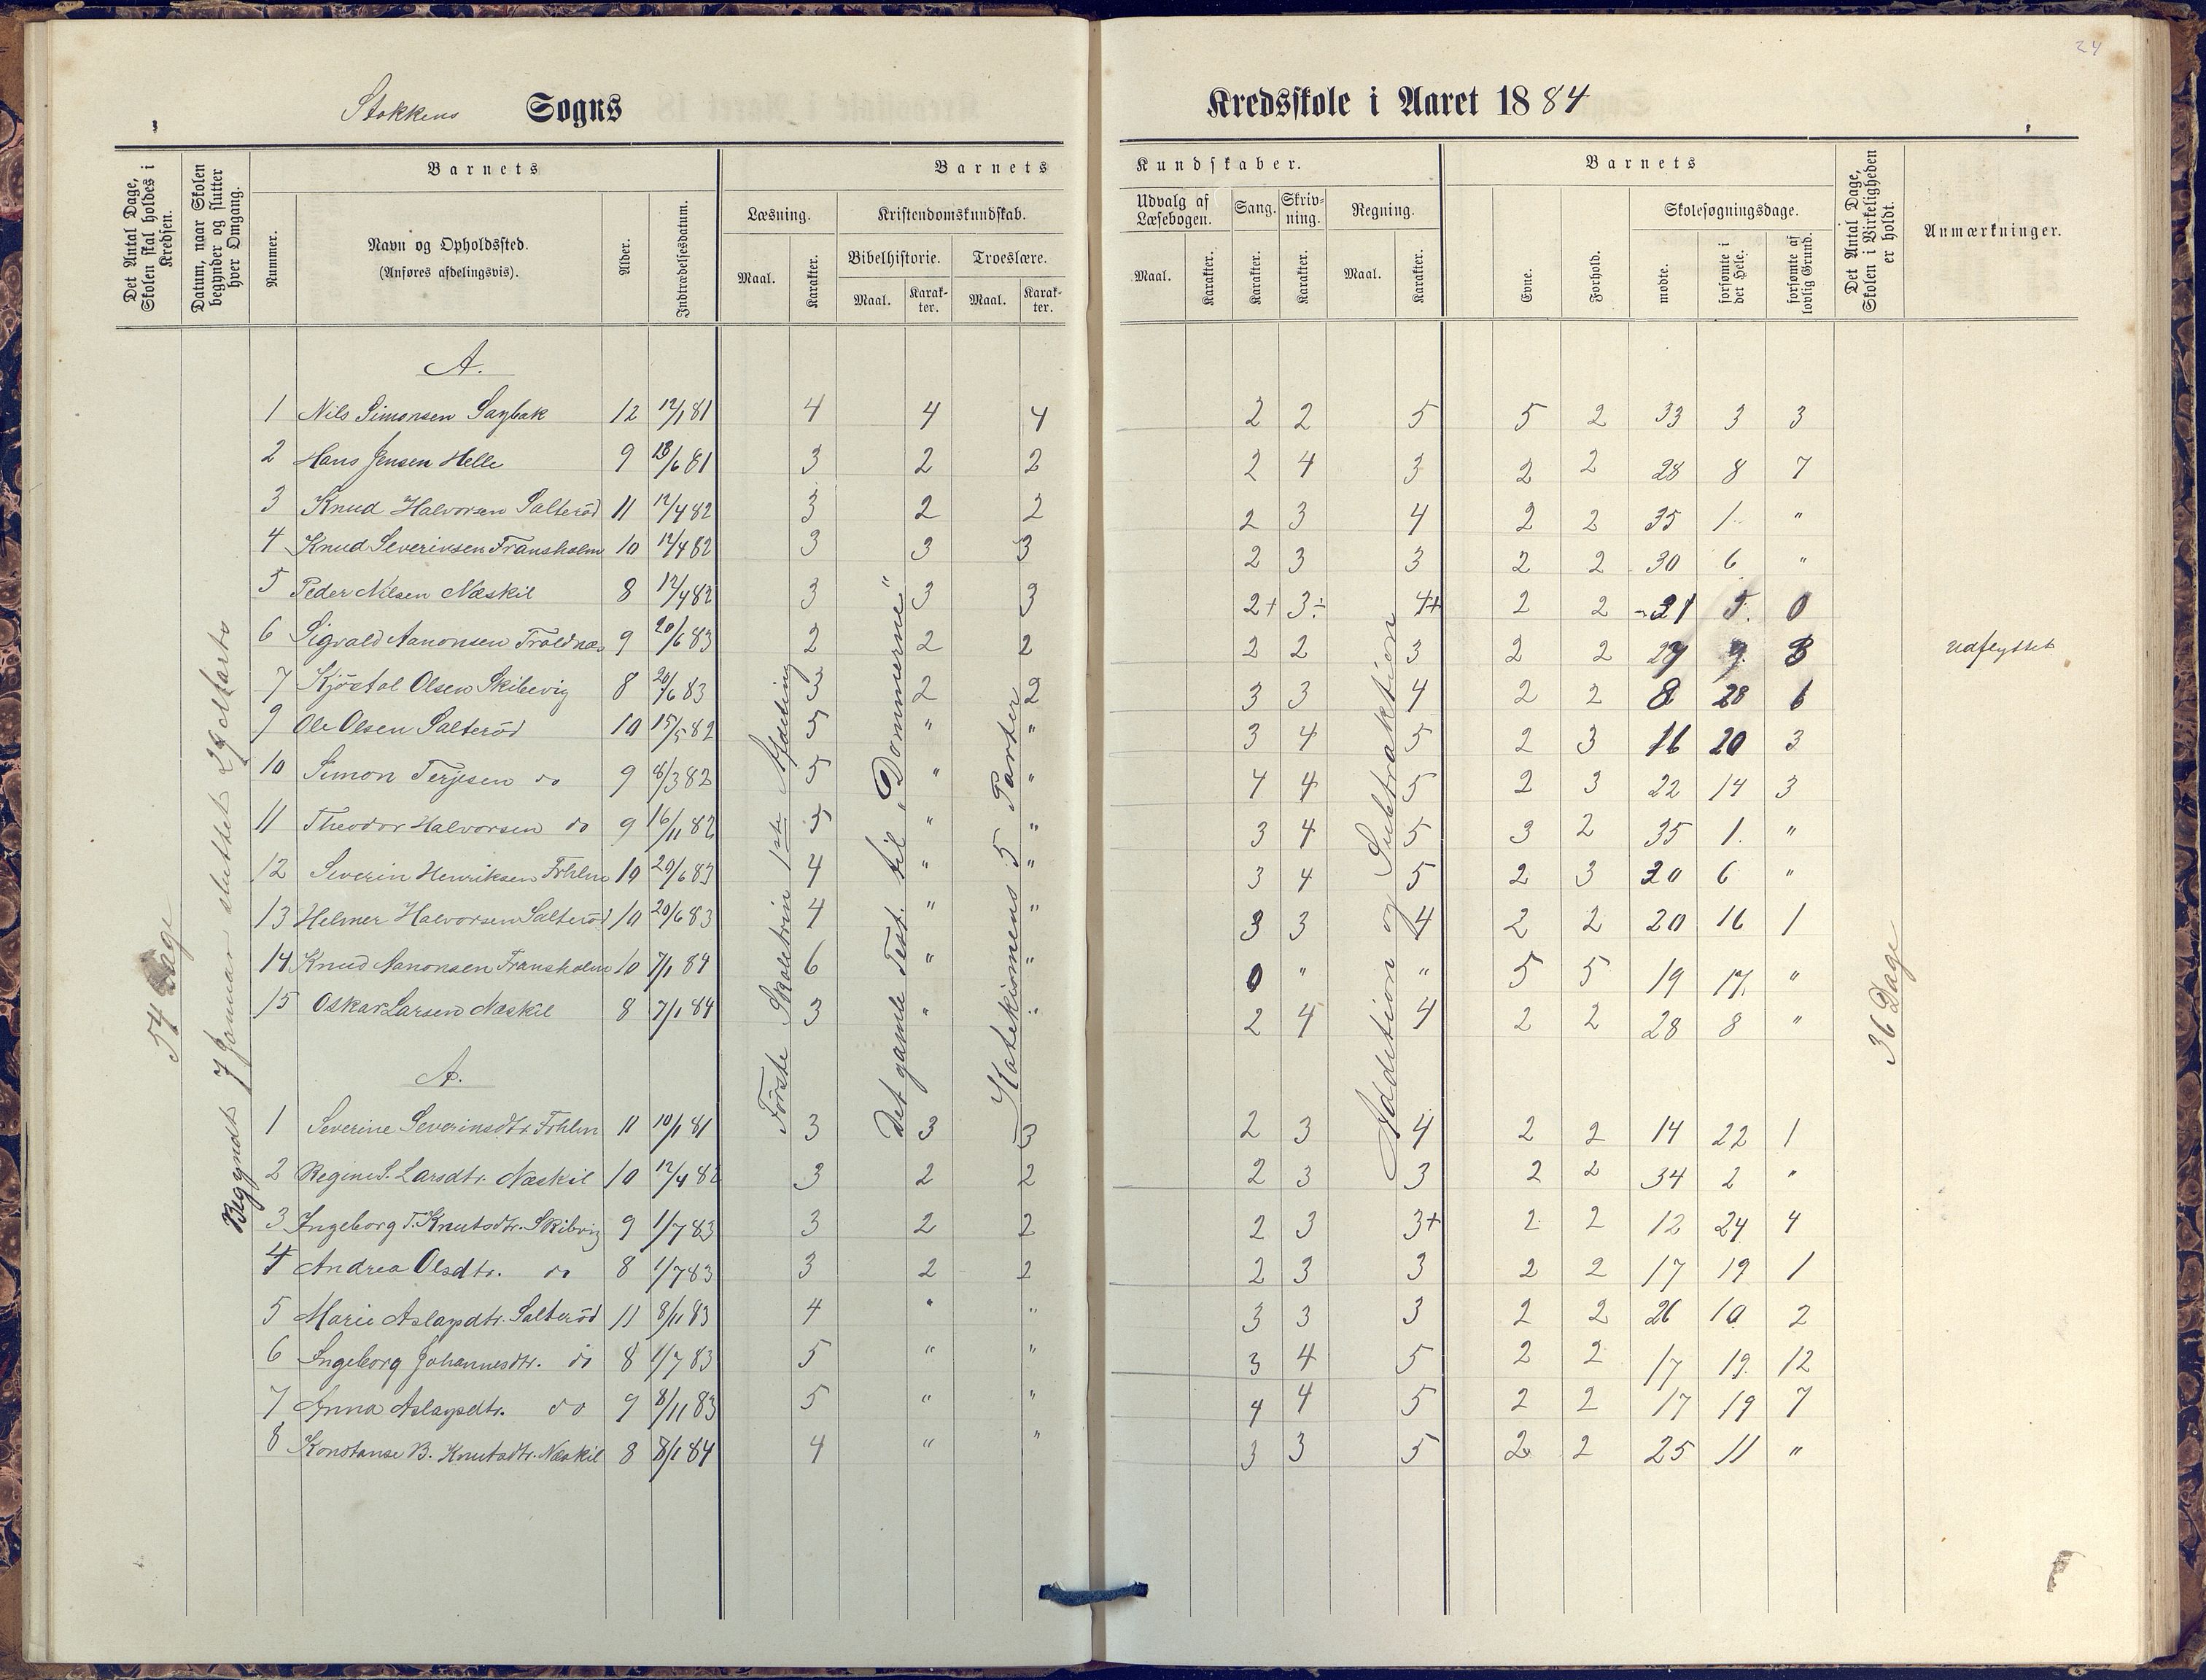 24
Stokkens Sogns Kredsskole i Aaret 1884
Det Antal Dage, Skolen skal holdes i Kredsen.
Datum, naar Skolen begynder og slutter hver Omgang.
Barnets
Nummer.
Navn og Opholdssted.
(Anføres afdelingsvis).
Alder.
Indtrædelsesdatum.
Barnets Kundskaber.
Læsning.
Maal.
Karakter.
Kristendomskundskab.
Bibelhistorie.
Maal.
Karakter.
Troeslære.
Maal.
Karakter.
Udvalg af Læsebogen.
Maal.
Karakter.
Sang.
Karakter.
Skrivning.
Karakter.
Regning.
Maal.
Karakter.
Barnets
Evne.
Forhold.
Skolesøgningsdage.
mødte.
forsømte i det Hele.
forsømte af lovlig Grund.
Det Antal Dage, Skolen i Virkeligheden er holdt.
Anmærkninger.
54 Dage
Begyndt 7 Januar sluttet 29 Marts
Første Skoletrin 1ste Afdeling
Det gamle Test. til "Dommerne"
Katekismens 5 Parter
Addition og Subtraktion
36 Dage
A.
1 Nils Simonsen 12 12/1 81 4 4 4 2 2 5 5 2 33 3 3
2 Hans Jensen Helle 9 13/6 81 3 2 2 2 4 3 2 2 28 8 7
3 Knud Halvorsen Salterød 11 12/4 82 3 2 2 2 3 4 2 2 35 1 "
4 Knud Severinsen Fransholm 10 12/4 82 3 3 3 2 3 3 2 2 30 6 "
5 Peder Nilsen Næskil 8 12/4 82 3 3 3 2+ 3÷ 4+ 2 2 5. 0
6 Sigvald Aanonsen 9 20/6 83 2 2 2 2 2 3 2 2 udflyttet
7 Kjøstol Olsen Skibevig 8 20/6 83 3 2 2 3 3 4 2 2 8 28 6
9 Ole Olsen Salterød 10 15/5 82 5 " " 3 4 5 2 3 16 20 3
10 Simon Terjesen do 9 8/3 82 5 " " 4 4 5 2 3 22 14 3
11 Theodor Halvorsen do 9 16/11 82 5 " " 3 4 5 3 2 35 1. "
12 Severin Henriksen Frhlm 10 20/6 83 4 " " 3 4 5 2 3 30 6 "
13 Helmer Halvorsen Salterød 10 20/6 83 4 " " 3 3 4 2 2 20 16 1
14 Knud Aanonsen Fransholm 10 7/1 84 6 " " 0 " " 5 5 19 17. "
15 Oskar Larsen Næskil 8 7/1 84 3 " " 2 4 4 2 2 28 8 "
A.
1 Severine Severinsdtr Frhlm 11 10/1 81 3 3 3 2 3 4 2 2 14 22 1
2 Regine S. Larsdtr. Næskil 10 12/4 82 3 2 2 2 3 3 2 2 34 2 "
3 Ingeborg T. Knutsdtr. Skibvig 9 1/7 83 3 2 2 2 3 3+ 2 2 12 24 4
4 Andrea Olsdtr. do 8 1/7 83 3 2 2 2 3 3 2 2 17 19 1
5 Marie Aslagsdtr. Salterød 11 8/11 83 4 " " 3 3 3 2 2 26 10 2
6 Ingeborg Johannesdtr. do 8 1/7 83 5 " " 3 4 5 2 2 17 19. 12
7 Anna Aslagsdtr. do 9 8/11 83 5 " " 4 4 5 2 2 17 19 7
8 Konstanse B. Knutsdtr. Næskil 8 8/1 84 4 " " 3 3 5 2 2 25 11 "